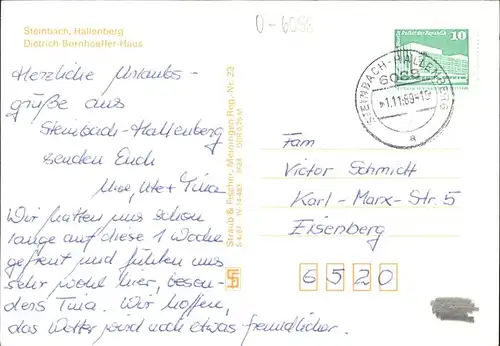 Steinbach, Hallenberg
Dietrich-Bonhoeffer-Haus
0-6056
Palast der Republik
10
DDR
STEINBACH-HALLENBERG
6089
-1.11.89-19
a
Herzliche Urlaubs-
grüße aus
Steinbach-Hallenberg
senden Euch
Uwe, Ute + Tina
Wir hatten uns schon
lange auf diese 1 Woche
gefreut und fühlen uns
sehr wohl hier, beson-
ders Tina. Wir hoffen,
das Wetter wird noch etwas freundlicher.
Straub & Fischer, Meiningen Reg.-Nr. 23
Fam
Victor Schmidt
Karl-Marx-Str. 5
Eisenberg
6520